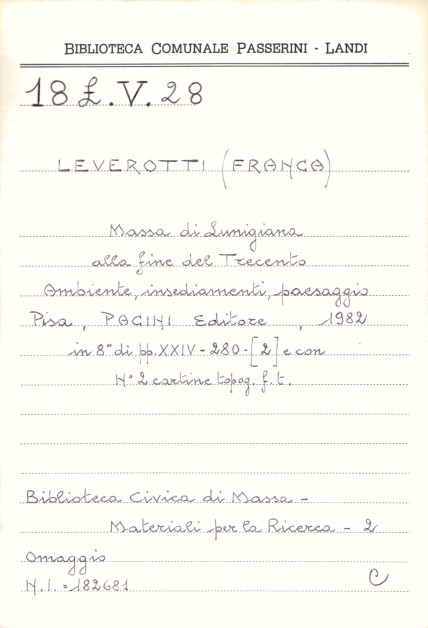 BIBLIOTECA COMUNALE PASSERINI - LANDI
18 £.V.28
LEVEROTTI (FRANCA)
Massa di Lunigiana
alla fine del Trecento
Ambiente, insediamenti, paesaggio
Pisa, PACINI Editore, 1982
in 8° di pp. XXIV - 280 - [2] e con
N° 2 cartine topog. f. t.
Biblioteca Civica di Massa -
Materiali per la Ricerca - 2
Omaggio
N.I. = 182681
C